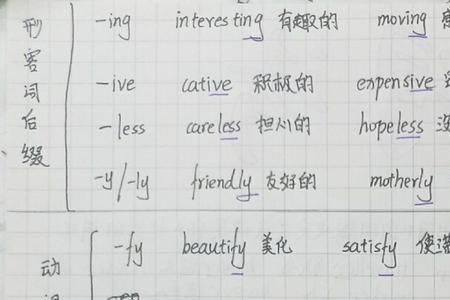 形容词后缀
-ing interesting 有趣的 moving
-ive cative 积极的 expensive
-less careless 担心的 hopeless
-y/-ly friendly 友好的 motherly
动
-fy beautify 美化 satisfy 使